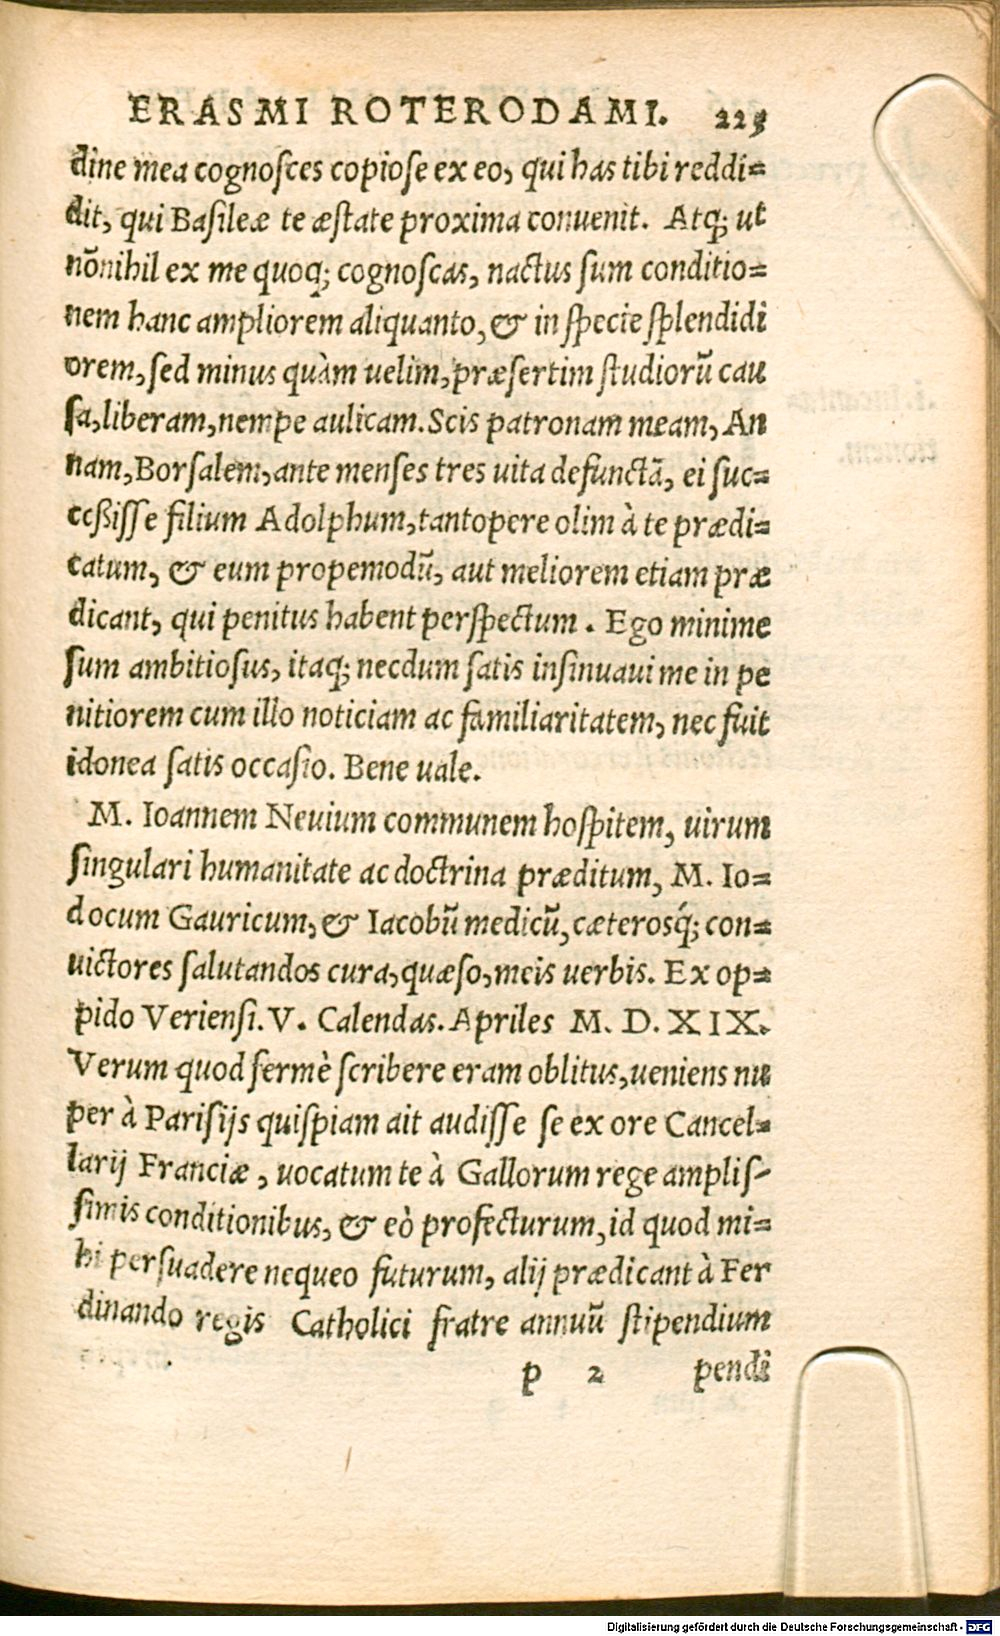 ERASMI ROTERODAMI. 225
dine mea cognosces copiose ex eo, qui has tibi reddi=
dit, qui Basileæ te æstate proxima conuenit. Atq; ut
nõnihil ex me quoq; cognoscas, nactus sum conditio=
nem hanc ampliorem aliquanto, & in specie splendidi
orem, sed minus quàm uelim, præsertim studiorũ cau
sa, liberam, nempe aulicam. Scis patronam meam, An
nam, Borsalem, ante menses tres uita defunctã, ei suc=
ceßisse filium Adolphum, tantopere olim à te prædi=
catum, & eum propemodũ, aut meliorem etiam præ
dicant, qui penitus habent perspectum. Ego minime
sum ambitiosus, itaq; necdum satis insinuaui me in pe
nitiorem cum illo noticiam ac familiaritatem, nec fuit
idonea satis occasio. Bene uale.
M. Ioannem Neuium communem hospitem, uirum
singulari humanitate ac doctrina præditum, M. Io=
docum Gauricum, & Iacobũ medicũ, cæterosq́; con=
uictores salutandos cura, quæso, meis uerbis. Ex op=
pido Veriensi. V. Calendas. Apriles M. D. XIX.
Verum quod fermè scribere eram oblitus, ueniens nu
per à Parisijs quispiam ait audisse se ex ore Cancel=
larij Franciæ, uocatum te à Gallorum rege amplis-
simis conditionibus, & eò profecturum, id quod mi=
hi persuadere nequeo futurum, alij prædicant à Fer
dinando regis Catholici fratre annuũ stipendium
p 2 pendi
Digitalisierung gefördert durch die Deutsche Forschungsgemeinschaft - DFG